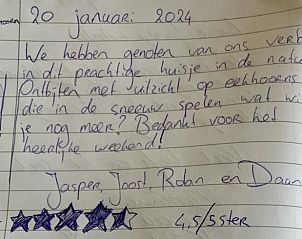 20 januari 2024
We hebben genoten van ons verb
in dit prachtige huisje in de natu
Ontbijten met uitzicht op eekhoorns
die in de sneeuw spelen wat wi
je nog meer? Bedankt voor het
heerlijke weekend!
Jasper, Joost, Robin en Daan
4,5/5 ster